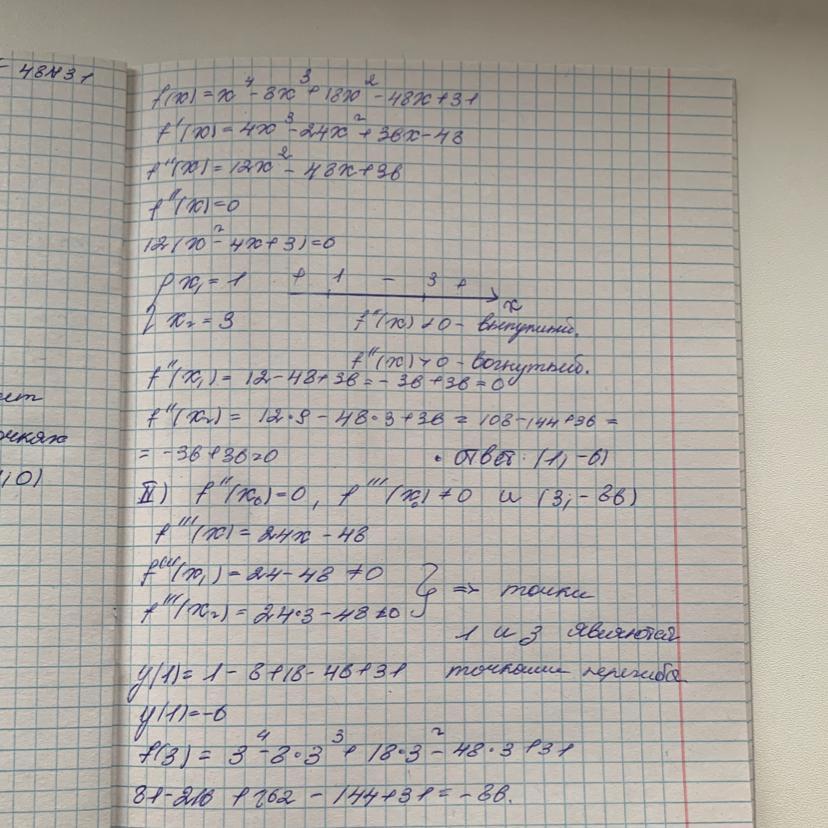 - 48x+31
f(x) = x⁴ - 8x³ + 18x² - 48x + 31
f'(x) = 4x³ - 24x² + 36x - 48
f''(x) = 12x² - 48x + 36
f''(x) = 0
12(x² - 4x + 3) = 0
x₁ = 1 + 1 - 3 + x
x₂ = 3 f''(x) < 0 - выпуклый.
f''(x) > 0 - вогнутый.
f''(x₁) = 12 - 48 + 36 = - 36 + 36 = 0
f''(x₂) = 12·9 - 48·3 + 36 = 108 - 144 + 36 =
= -36 + 36 = 0 • Ответ: (1; -6)
II) f''(x₀) = 0, f'''(x₀) ≠ 0 и (3; -86)
f'''(x) = 24x - 48
f'''(x₁) = 24 - 48 ≠ 0
} => точки
f'''(x₂) = 24·3 - 48 ≠ 0
1 и 3 являются
y(1) = 1 - 8 + 18 - 48 + 31 точками перегиба
y(1) = -6
f(3) = 3⁴ - 8·3³ + 18·3² - 48·3 + 31
81 - 216 + 162 - 144 + 31 = -86.
; 0)